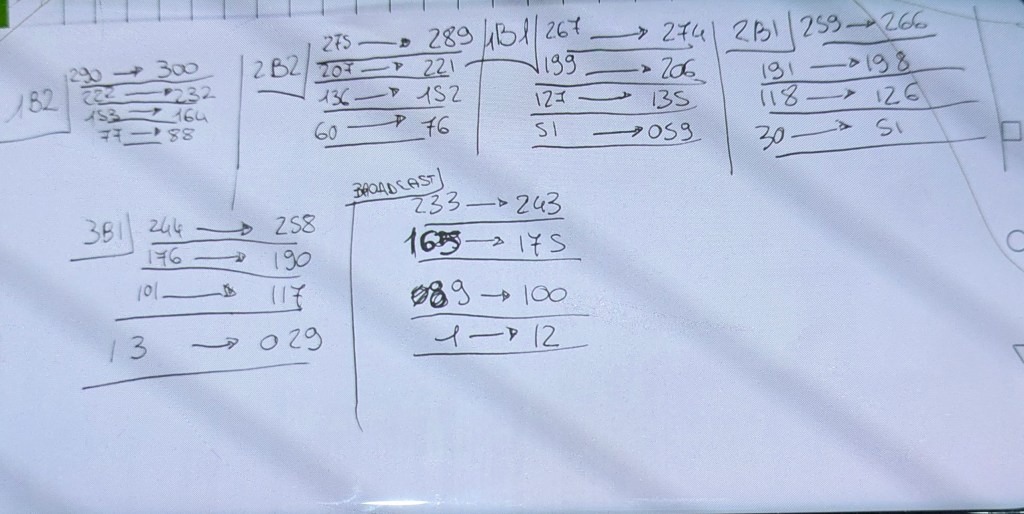 1B2
290 → 300
222 → 232
153 → 164
77 → 88
2B2
275 → 289
207 → 221
136 → 152
60 → 76
1B1
267 → 274
199 → 206
127 → 135
51 → 059
2B1
259 → 266
191 → 198
118 → 126
30 → 51
3B1
244 → 258
176 → 190
101 → 117
13 → 029
BROADCAST
233 → 243
→ 175
89 → 100
1 → 12